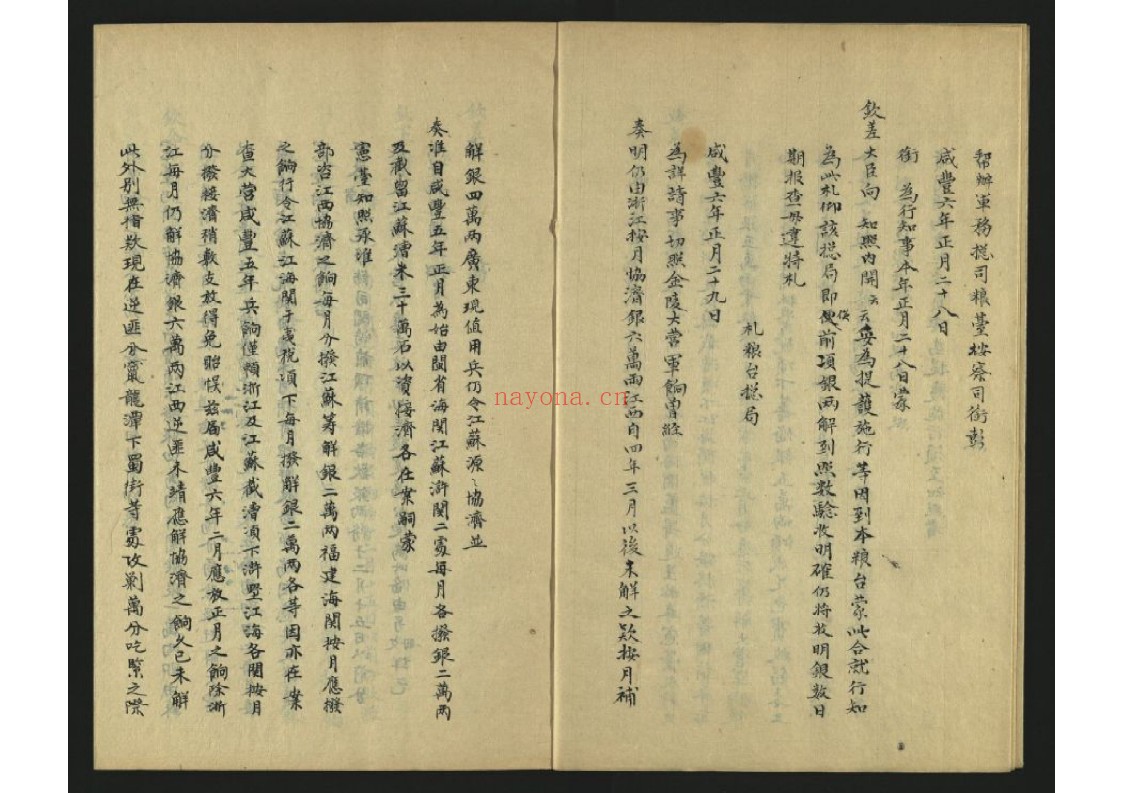 幫辦軍務總司粮臺按察司銜彭
咸豐六年正月二十八日
銜 為行知事本年正月二十八日蒙
欽差大臣向 知照內開云云妥為提護施行等因到本粮台蒙此合就行知
為此札仰該總局即俟前項銀兩解到照數驗收明確仍將收明銀數日
期報查毋違特札
咸豐六年正月二十九日
札粮台總局
為詳請事切照金陵大營軍餉曾經
奏明仍由浙江按月協濟銀六萬兩江西自四年三月以後未解之欵按月補
解銀四萬兩廣東現值用兵仍令江蘇源源協濟並
奏准自咸豐五年正月為始由閩省海関江蘇滸関二處每月各撥銀二萬兩
及截留江蘇漕米三十萬石以資接濟各在案嗣蒙
憲臺知照承准
部咨江西協濟之餉每月分撥江蘇籌解銀二萬兩福建海関按月應撥
之餉行令江蘇江海関于夷稅項下每月撥解銀二萬兩各等因亦在案
查大營咸豐五年兵餉僅賴浙江及江蘇截漕項下滸墅江海各関按月
分撥接濟稍敷支放得免貽悞茲屆咸豐六年二月應放正月之餉除浙
江每月仍解協濟銀六萬兩江西逆匪未靖應解協濟之餉久已未解
此外別無指欵現在逆匪分竄龍潭下蜀街等處攻剿萬分吃緊之際
nayona.cn